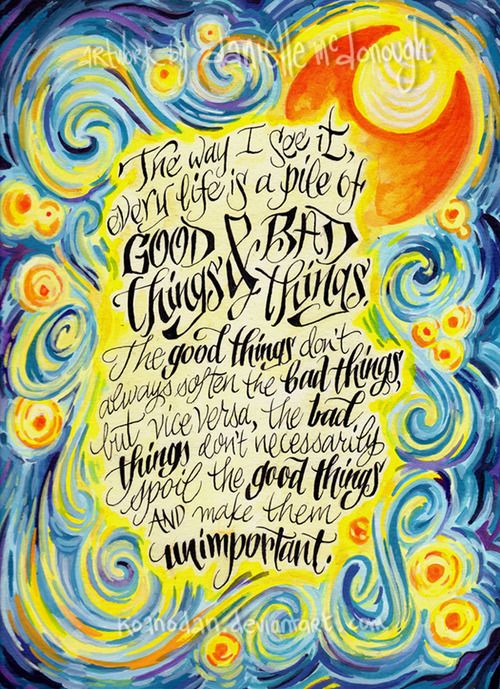 artwork by danielle mcdonough
The way I see it,
every life is a pile of
GOOD & BAD
things things.
The good things don't
always soften the bad things,
but vice versa, the bad
things don't necessarily
spoil the good things
AND make them
unimportant.
koanogan.deviantart.com